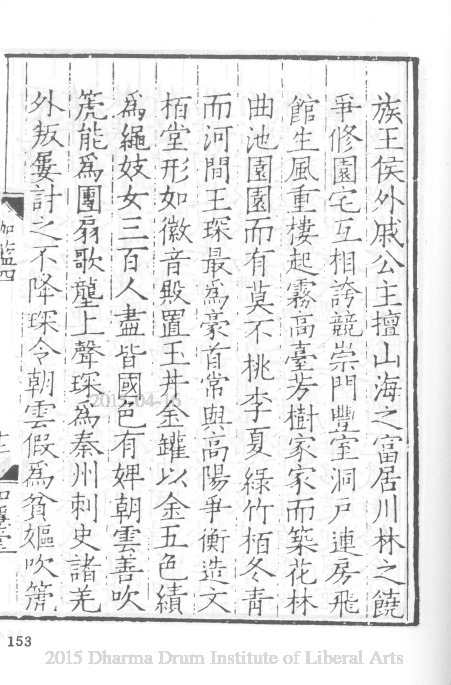 族王侯外戚公主擅山海之富居川林之饒
爭修園宅互相誇競崇門豐室洞戶連房飛
館生風重樓起霧高臺芳樹家家而築花林
曲池園園而有莫不桃李夏綠竹栢冬青
而河間王琛最爲豪首常與高陽爭衡造文
栢堂形如徽音殿置玉井金罐以金五色績
爲繩妓女三百人盡皆國色有婢朝雲善吹
箎能爲團扇歌壟上聲琛爲秦州刺史諸羌
外叛屢討之不降琛令朝雲假爲貧嫗吹箎
伽藍四
153
2015 Dharma Drum Institute of Liberal Arts